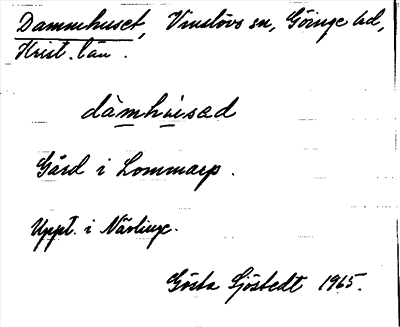 Dammhuset, Vinslövs sn, Göinge hd,
Krist. län.
dàmhùsəd
Gård i Lommarp.
Uppt. i Nävlinge.
Gösta Sjöstedt 1965.